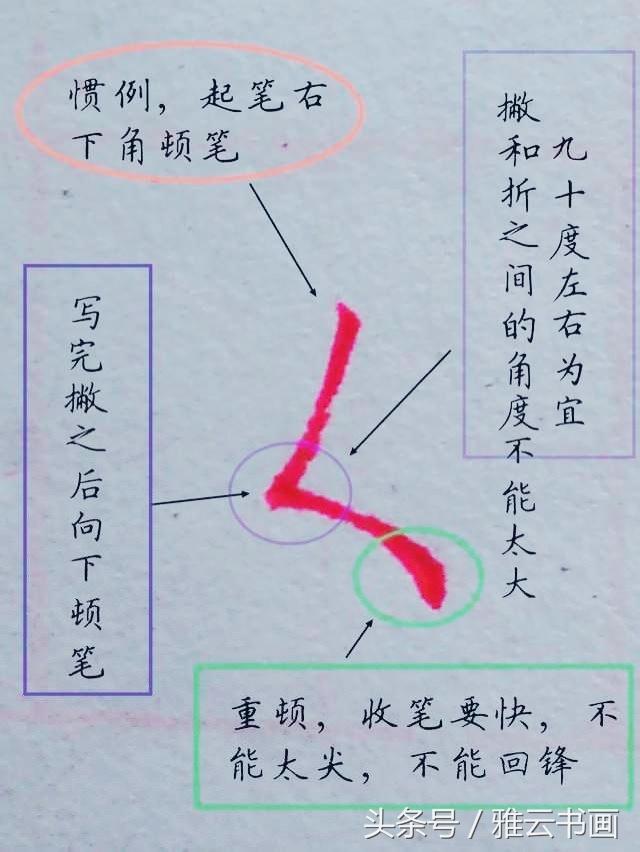 惯例，起笔右
下角顿笔
撇和折之间的角度不能太大
九十度左右为宜
写完撇之后向下顿笔
重顿，收笔要快，不
能太尖，不能回锋
头条号／雅云书画